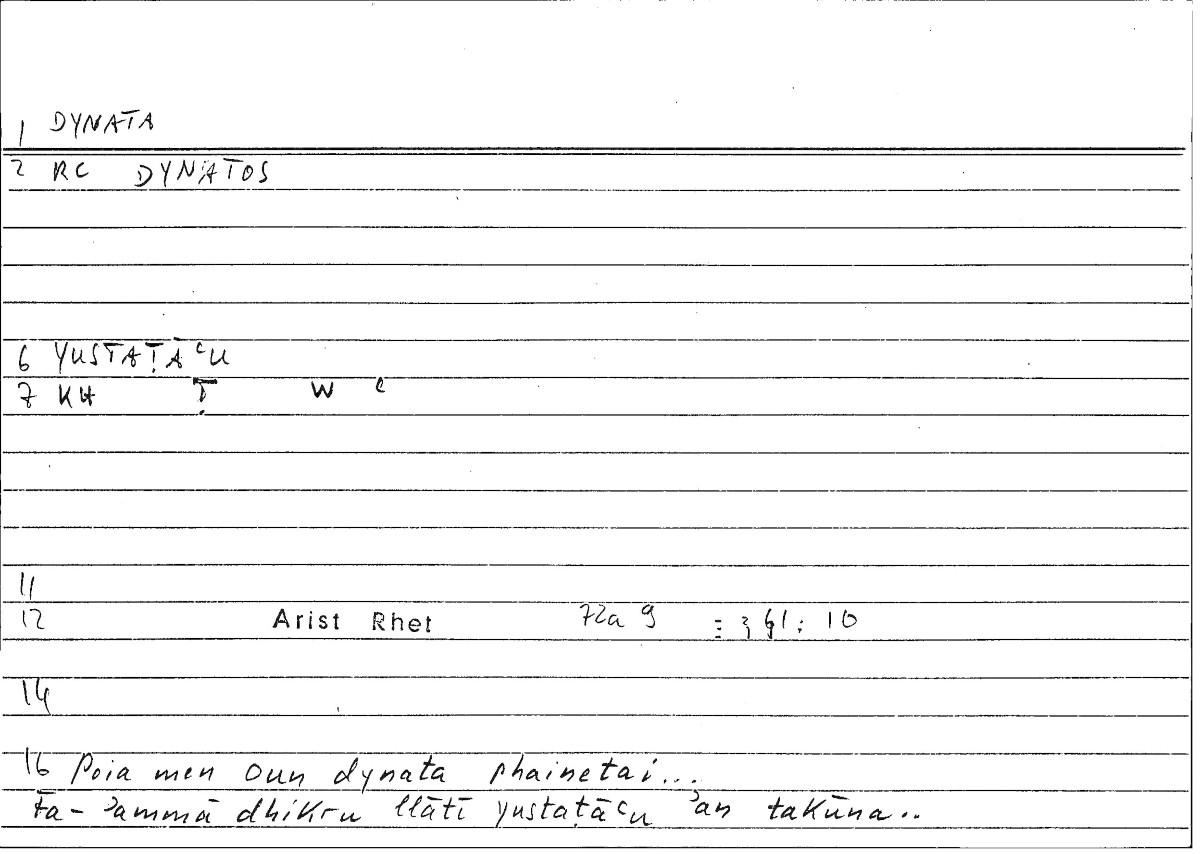 1 DYNATA
2 RC DYNATOS
6 YUSTAṬĀʿU
7 KH Ṭ W ʿ
11
12 Arist Rhet 72a 9 61: 10
14
16 Poia men oun dynata phainetai...
Fa-ʾammā dhikru llātī yustaṭāʿu ʾan takūna..